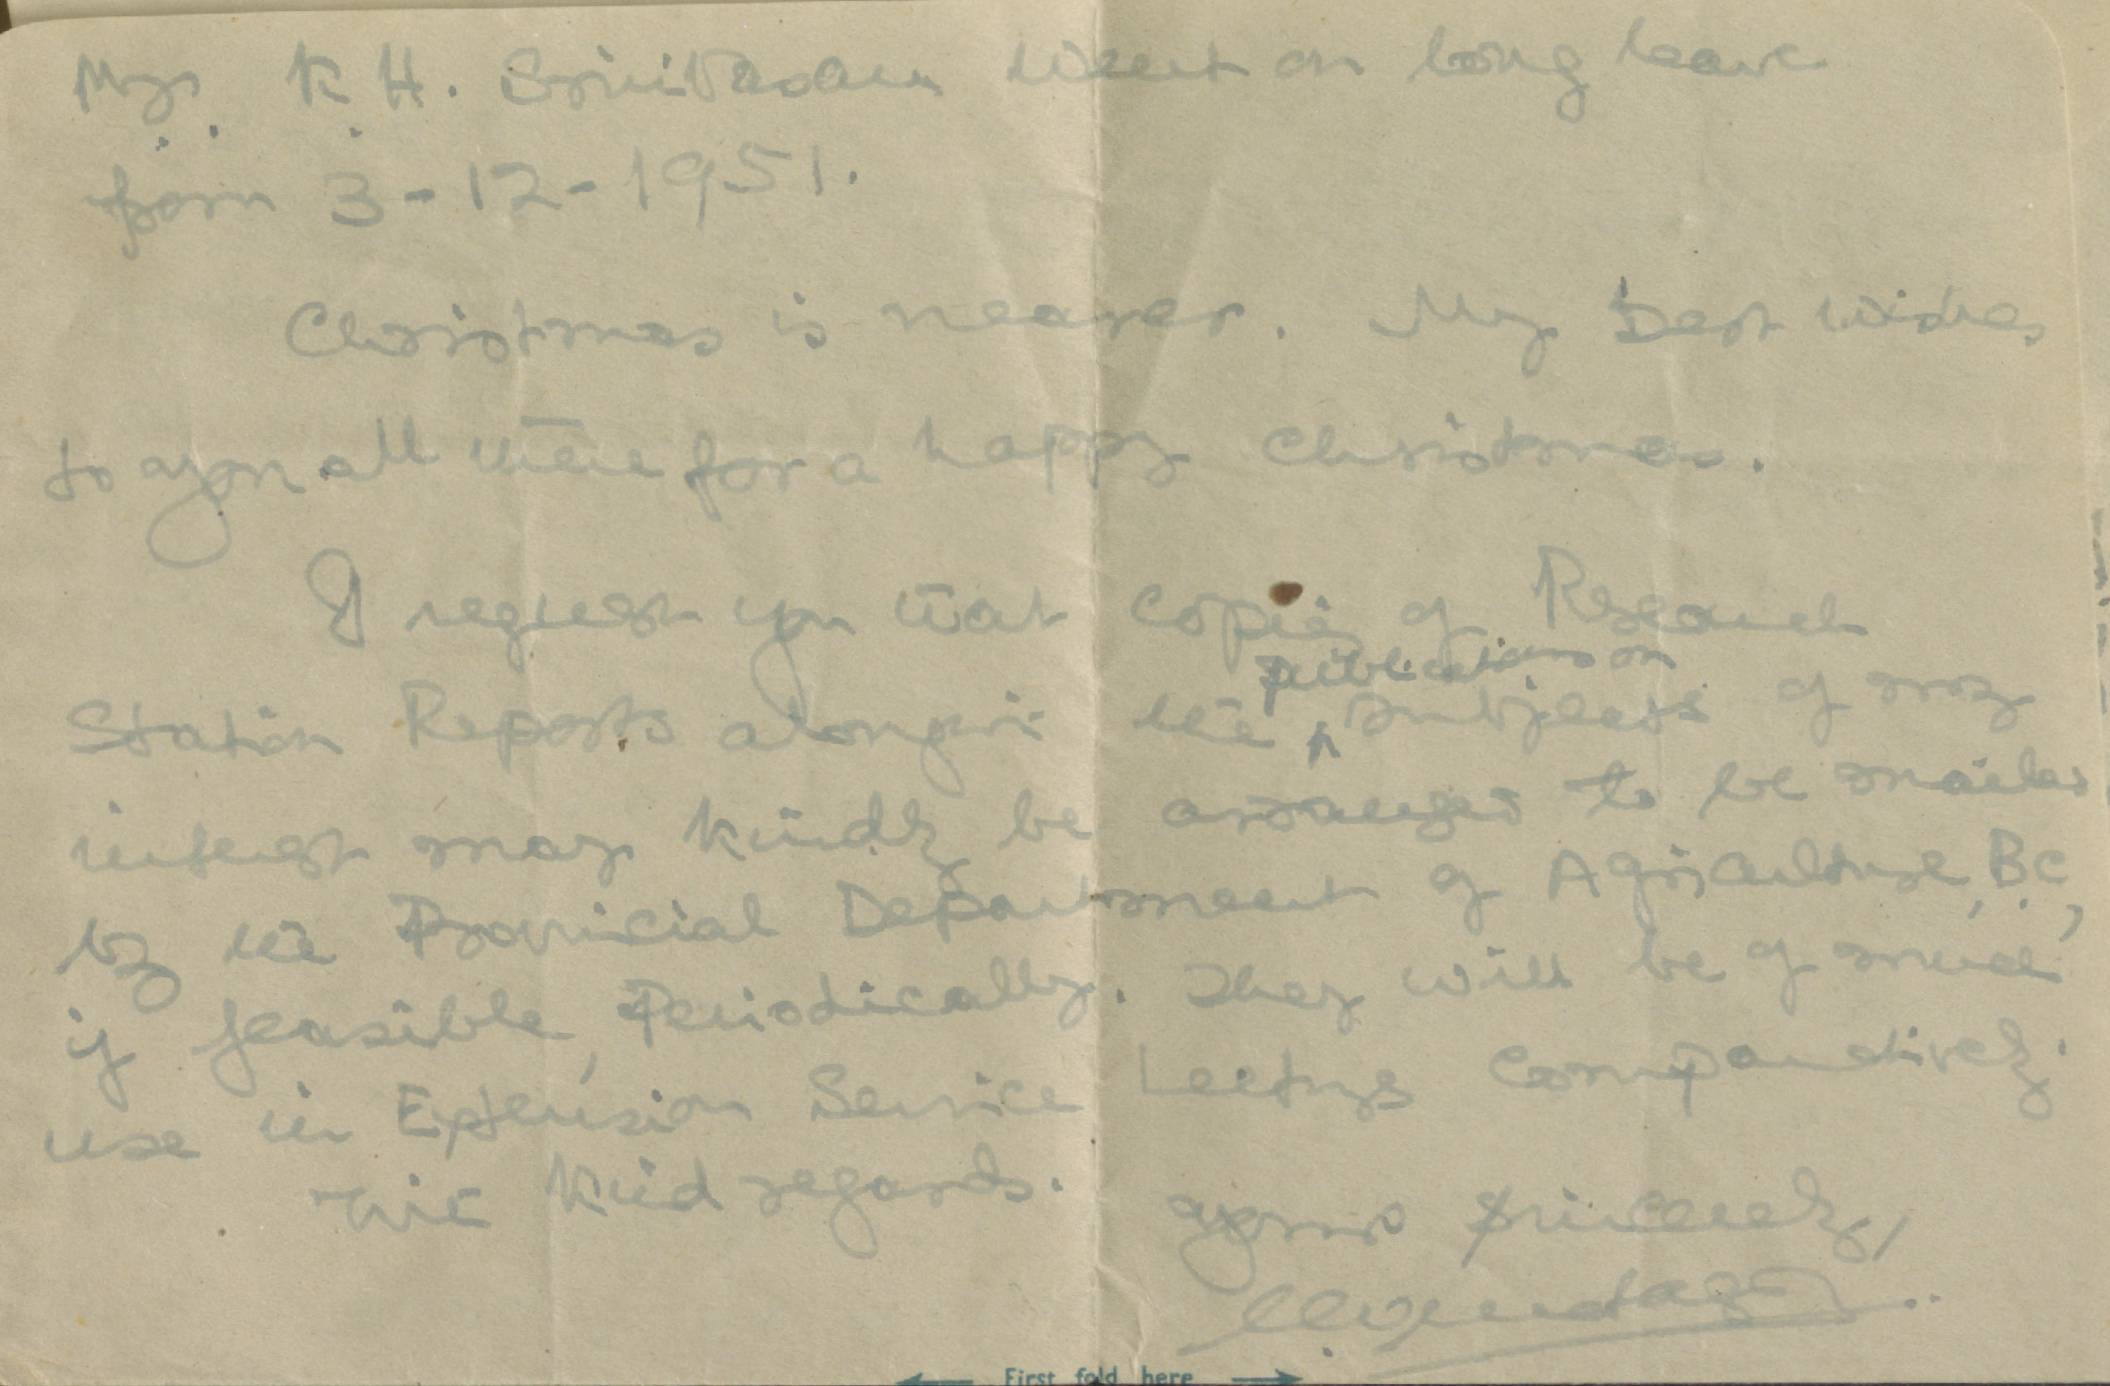 Mr. K H. Srinivasan went on long leave
from 3-12-1951.
Christmas is nearer. My best wishes
to you all there for a happy Christmas.
I request you that copies of Research
publications on
Station Reports alongwith the ^ subjects of my
interest may kindly be arranged to be mailed
by the Provincial Department of Agriculture, B.C,
if feasible, Periodically. They will be of much
use in Extension Service Lectures comparatively.
With kind regards.
yours sincerely,
First fold here